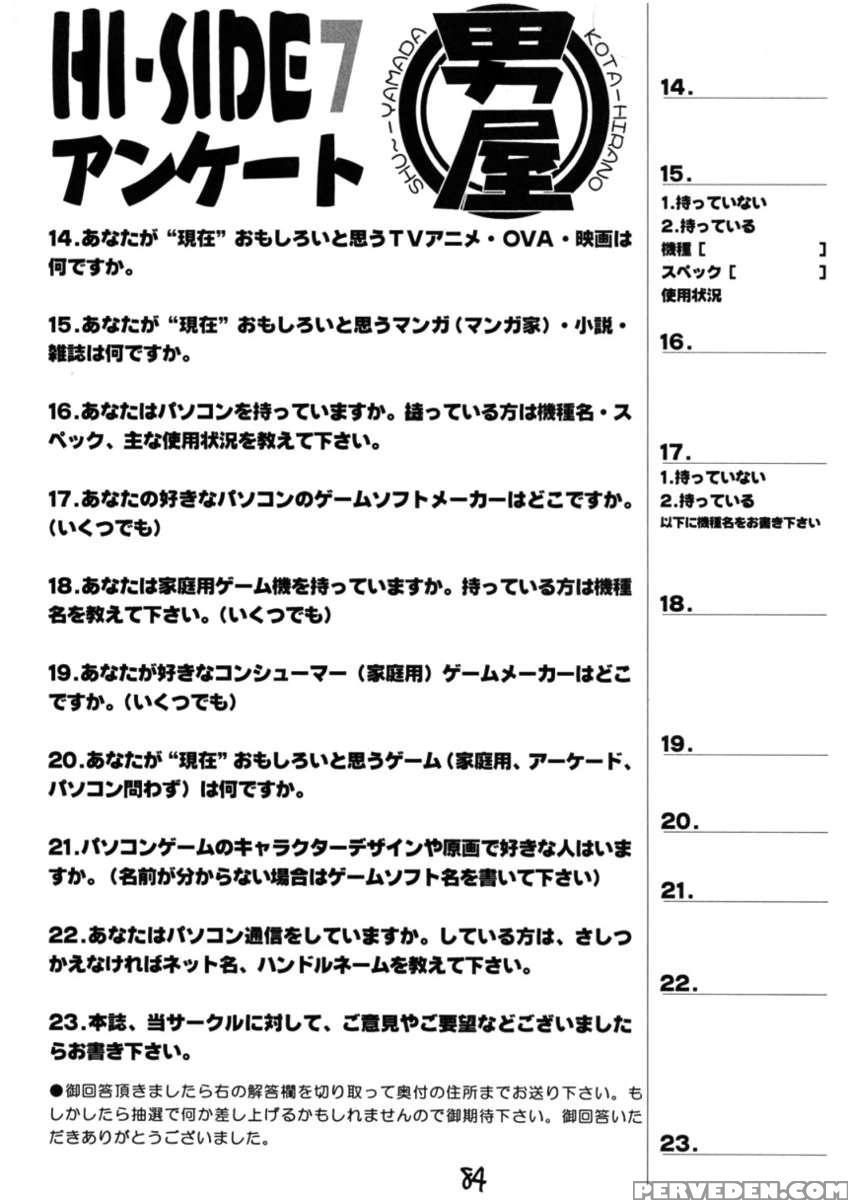 HI-SIDE7
アンケート
SHU~I-YAMADA
男屋
KOTA-HIRANO
14.あなたが“現在”おもしろいと思うTVアニメ・OVA・映画は
何ですか。
15.あなたが“現在”おもしろいと思うマンガ(マンガ家)・小説・
雑誌は何ですか。
16.あなたはパソコンを持っていますか。持っている方は機種名・ス
ペック、主な使用状況を教えて下さい。
17.あなたの好きなパソコンのゲームソフトメーカーはどこですか。
(いくつでも)
18.あなたは家庭用ゲーム機を持っていますか。持っている方は機種
名を教えて下さい。(いくつでも)
19.あなたが好きなコンシューマー(家庭用)ゲームメーカーはどこ
ですか。(いくつでも)
20.あなたが“現在”おもしろいと思うゲーム(家庭用、アーケード、
パソコン問わず)は何ですか。
21.パソコンゲームのキャラクターデザインや原画で好きな人はいま
すか。(名前が分からない場合はゲームソフト名を書いて下さい)
22.あなたはパソコン通信をしていますか。している方は、さしつ
かえなければネット名、ハンドルネームを教えて下さい。
23.本誌、当サークルに対して、ご意見やご要望などございました
らお書き下さい。
●御回答頂きましたら右の解答欄を切り取って奥付の住所までお送り下さい。も
しかしたら抽選で何か差し上げるかもしれませんので御期待下さい。御回答いた
だきありがとうございました。
84
14.
15.
1.持っていない
2.持っている
機種[ ]
スペック[ ]
使用状況
16.
17.
1.持っていない
2.持っている
以下に機種名をお書き下さい
18.
19.
20.
21.
22.
23.
PERVEDEN.COM